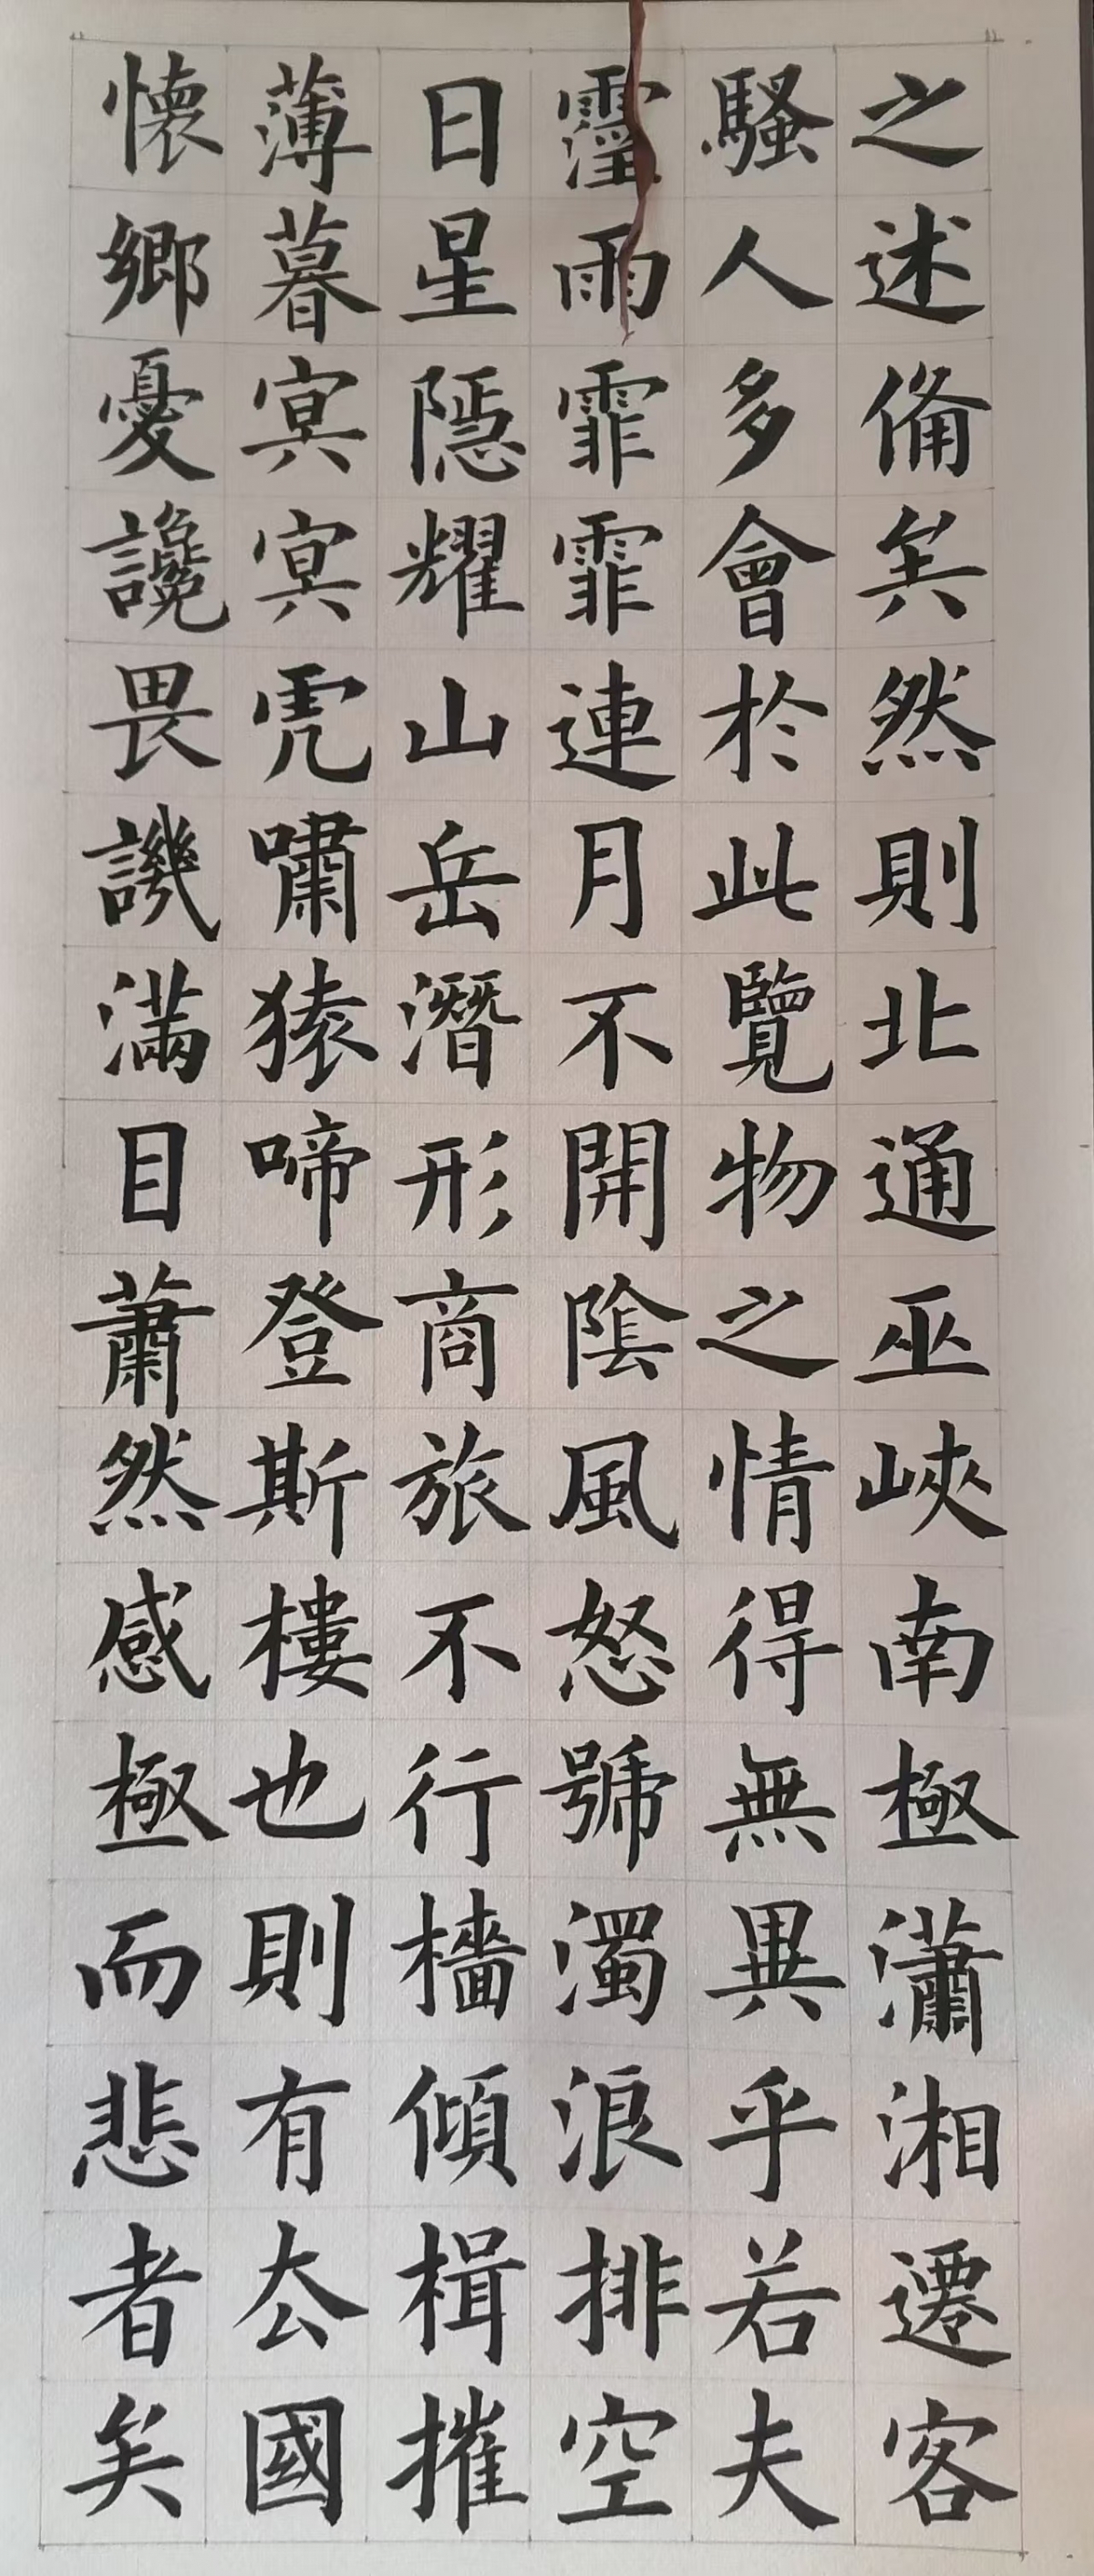 之述俻矣然則北通巫峽南極瀟湘遷客
騷人多會於此覽物之情得無異乎若夫
霪雨霏霏連月不開陰風怒號濁浪排空
日星隱耀山岳潛形商旅不行檣傾楫摧
薄暮冥冥虎嘯猿啼登斯樓也則有厺國
懷鄉憂讒畏譏滿目蕭然感極而悲者矣